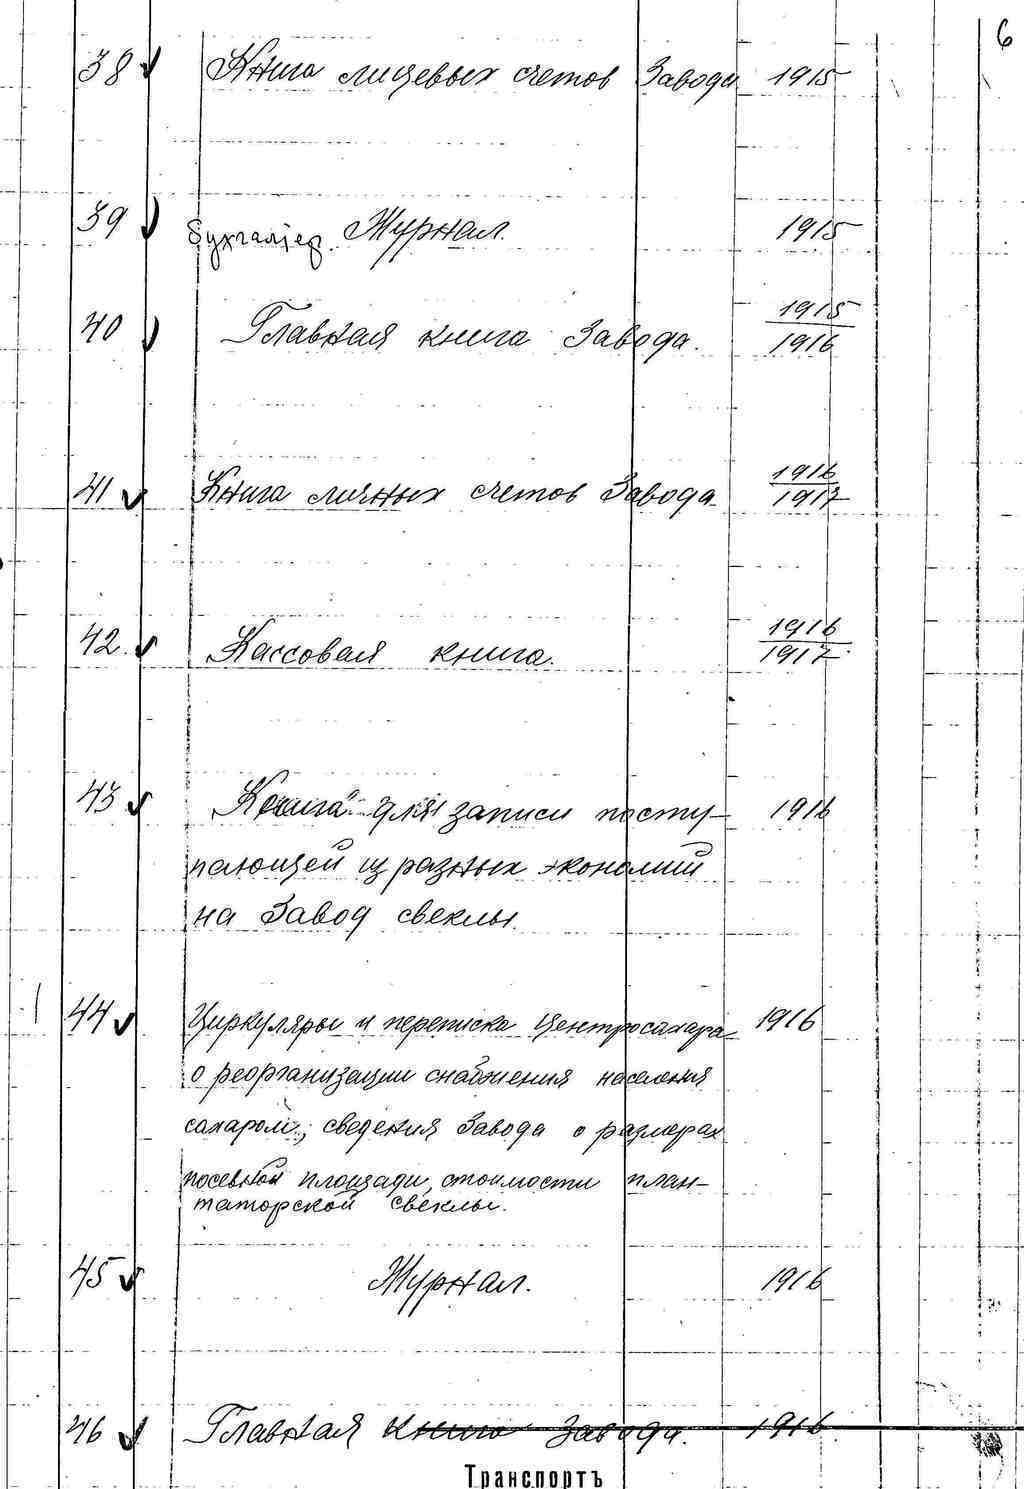 6
38 Книга лицевых счетов Завода 1915
39 бухгалтер. Журнал. 1915
40 Главная книга Завода. 1915
1916
41 Книга личных счетов Завода 1916
1917
42 Кассовая книга. 1916
1917
43 Книга для записи посту- 1916
пающей из разных экономий
на Завод свеклы.
44 Циркуляры и переписка Центросахара 1916
о реорганизации снабжения населения
сахаром; сведения Завода о размерах
посевной площади, стоимости план-
таторской свеклы.
45 Журнал. 1916
46 Главная книга Завода. 1916
Транспортъ